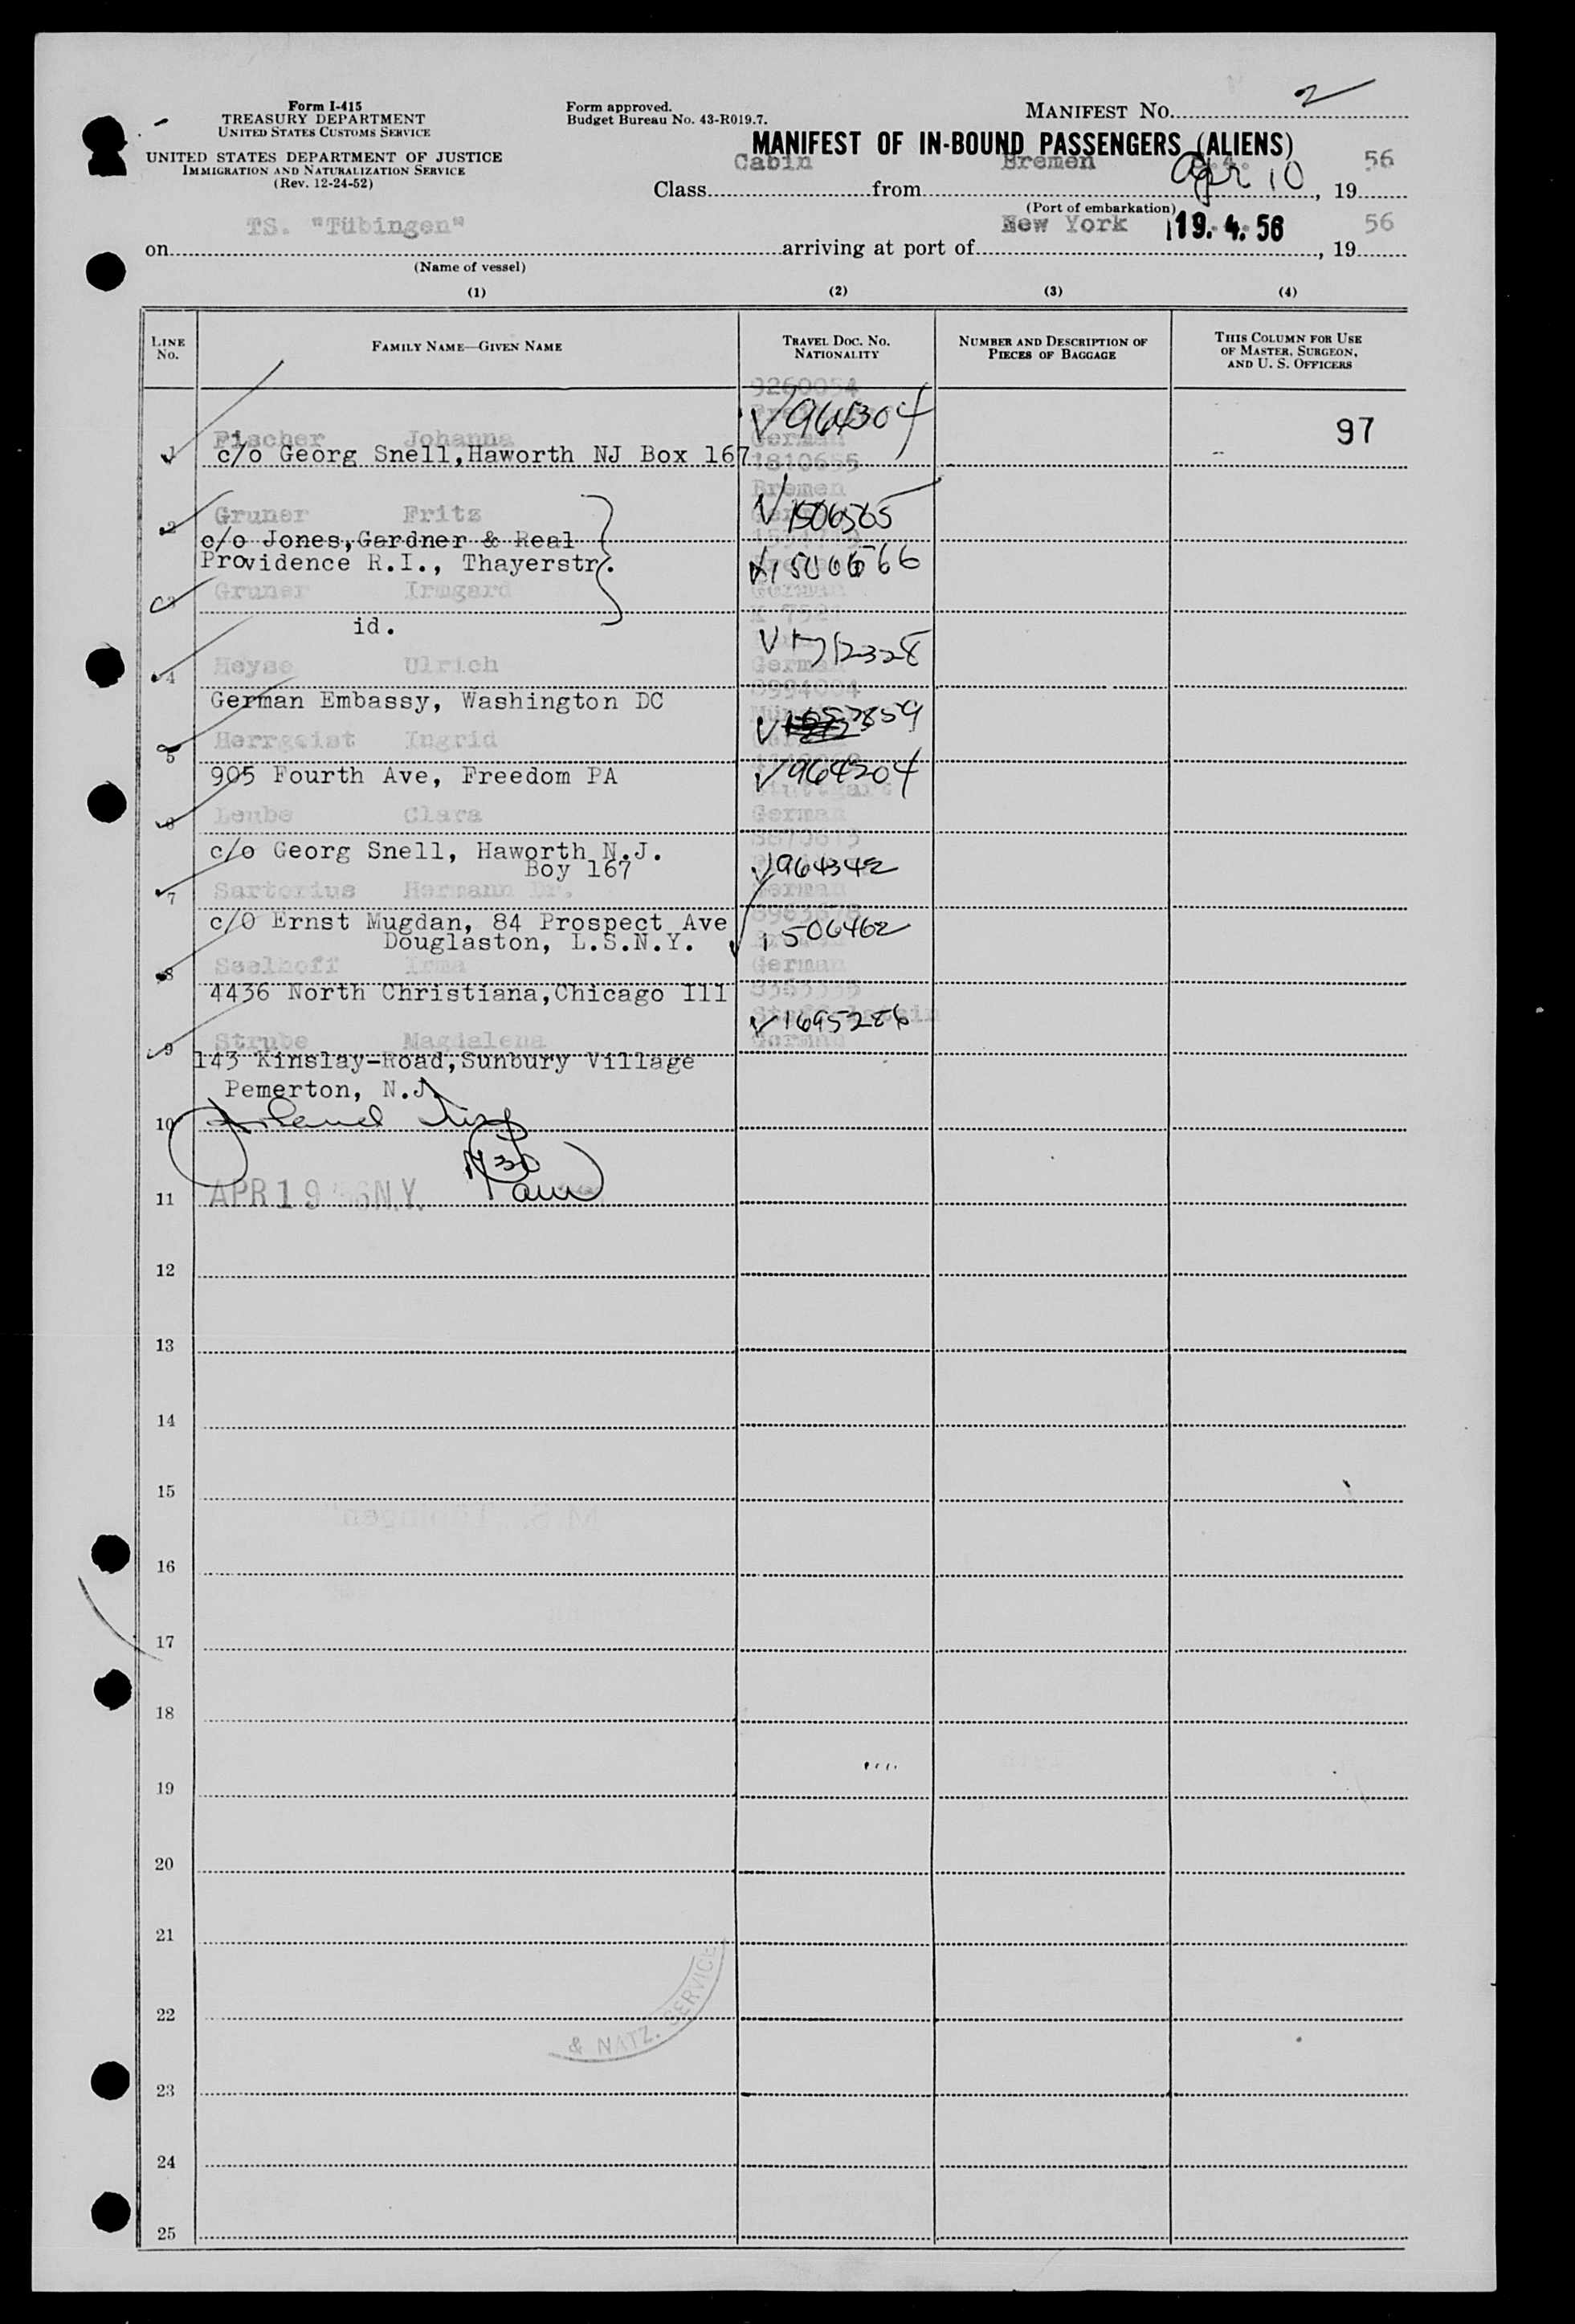 Form I-415
TREASURY DEPARTMENT
UNITED STATES CUSTOMS SERVICE
UNITED STATES DEPARTMENT OF JUSTICE
IMMIGRATION AND NATURALIZATION SERVICE
(Rev. 12-24-52)
Form approved.
Budget Bureau No. 43-R019.7.
MANIFEST NO. 2
MANIFEST OF IN-BOUND PASSENGERS (ALIENS)
Class Cabin from Bremen Apr 10, 19 56
(Port of embarkation)
on TS. "Tübingen" arriving at port of New York 19. 4. 56, 19 56
(Name of vessel)
(1) (2) (3) (4)
LINE NO.
FAMILY NAME—GIVEN NAME
TRAVEL DOC. NO. NATIONALITY
NUMBER AND DESCRIPTION OF PIECES OF BAGGAGE
THIS COLUMN FOR USE OF MASTER, SURGEON, AND U. S. OFFICERS
9260054
V964304
97
1 Fischer Johanna German
c/o Georg Snell,Haworth NJ Box 167
1810655
Bremen
2 Gruner Fritz V1506565
c/o Jones,Gardner & Real
Providence R.I., Thayerstr.
1506566
3 Gruner Irmgard German
id.
V1712328
4 Heyse Ulrich German
German Embassy, Washington DC
8994004
5 Herrgeist Ingrid
905 Fourth Ave, Freedom PA
V964204
Stuttgart
6 Leube Clara German
c/o Georg Snell, Haworth N.J.
Boy 167
8870615
V964342
7 Sartorius Hermann Dr. German
c/O Ernst Mugdan, 84 Prospect Ave
Douglaston, L.S.N.Y.
1506462
8 Seelhoff Irma German
4436 North Christiana,Chicago Ill
V1695286
9 Strube Magdalena German
143 Kinslay-Road,Sunbury Village
Pemerton, N.J.
10
11 APR 19 56 N.Y.
12
13
14
15
16
17
18
19
20
21
22
& NATZ. SERVICE
23
24
25